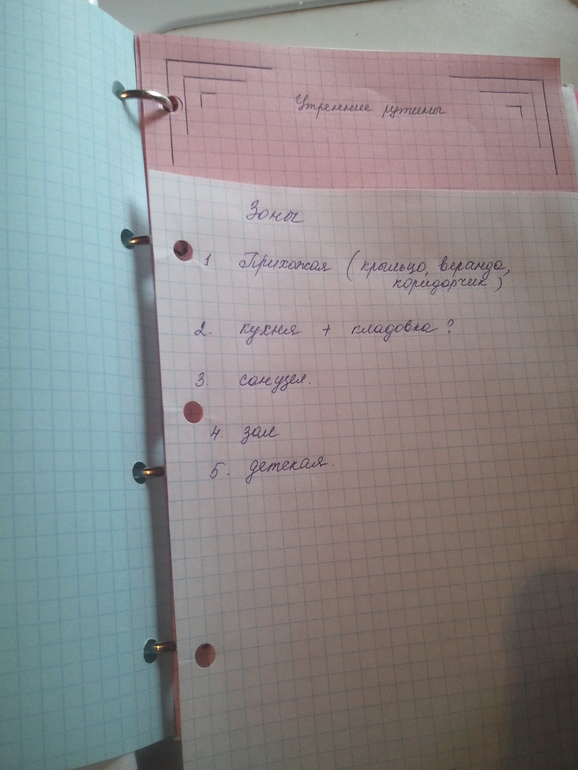 Утренние рутины
Зоны
1 Прихожая (крыльцо, веранда,
коридорчик)
2. кухня + кладовка?
3. санузел.
4. зал
5. детская.